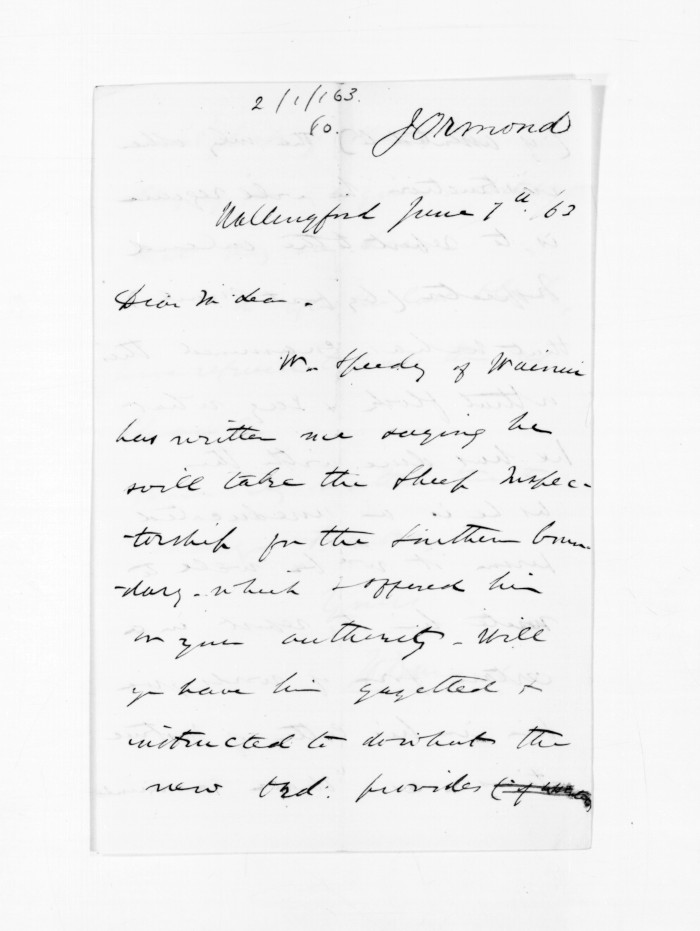 2/1/163.
80.
J Ormond
Wallingford June 7th. 63
Dear McLean.
Wm Speedy of Wainui
has written me saying he
will take the Sheep Inspec-
-torship for the Southern Boun-
-dary - which I offered him
on your authority - Will
you have him gazetted &
instructed to do what the
new Ord: provides